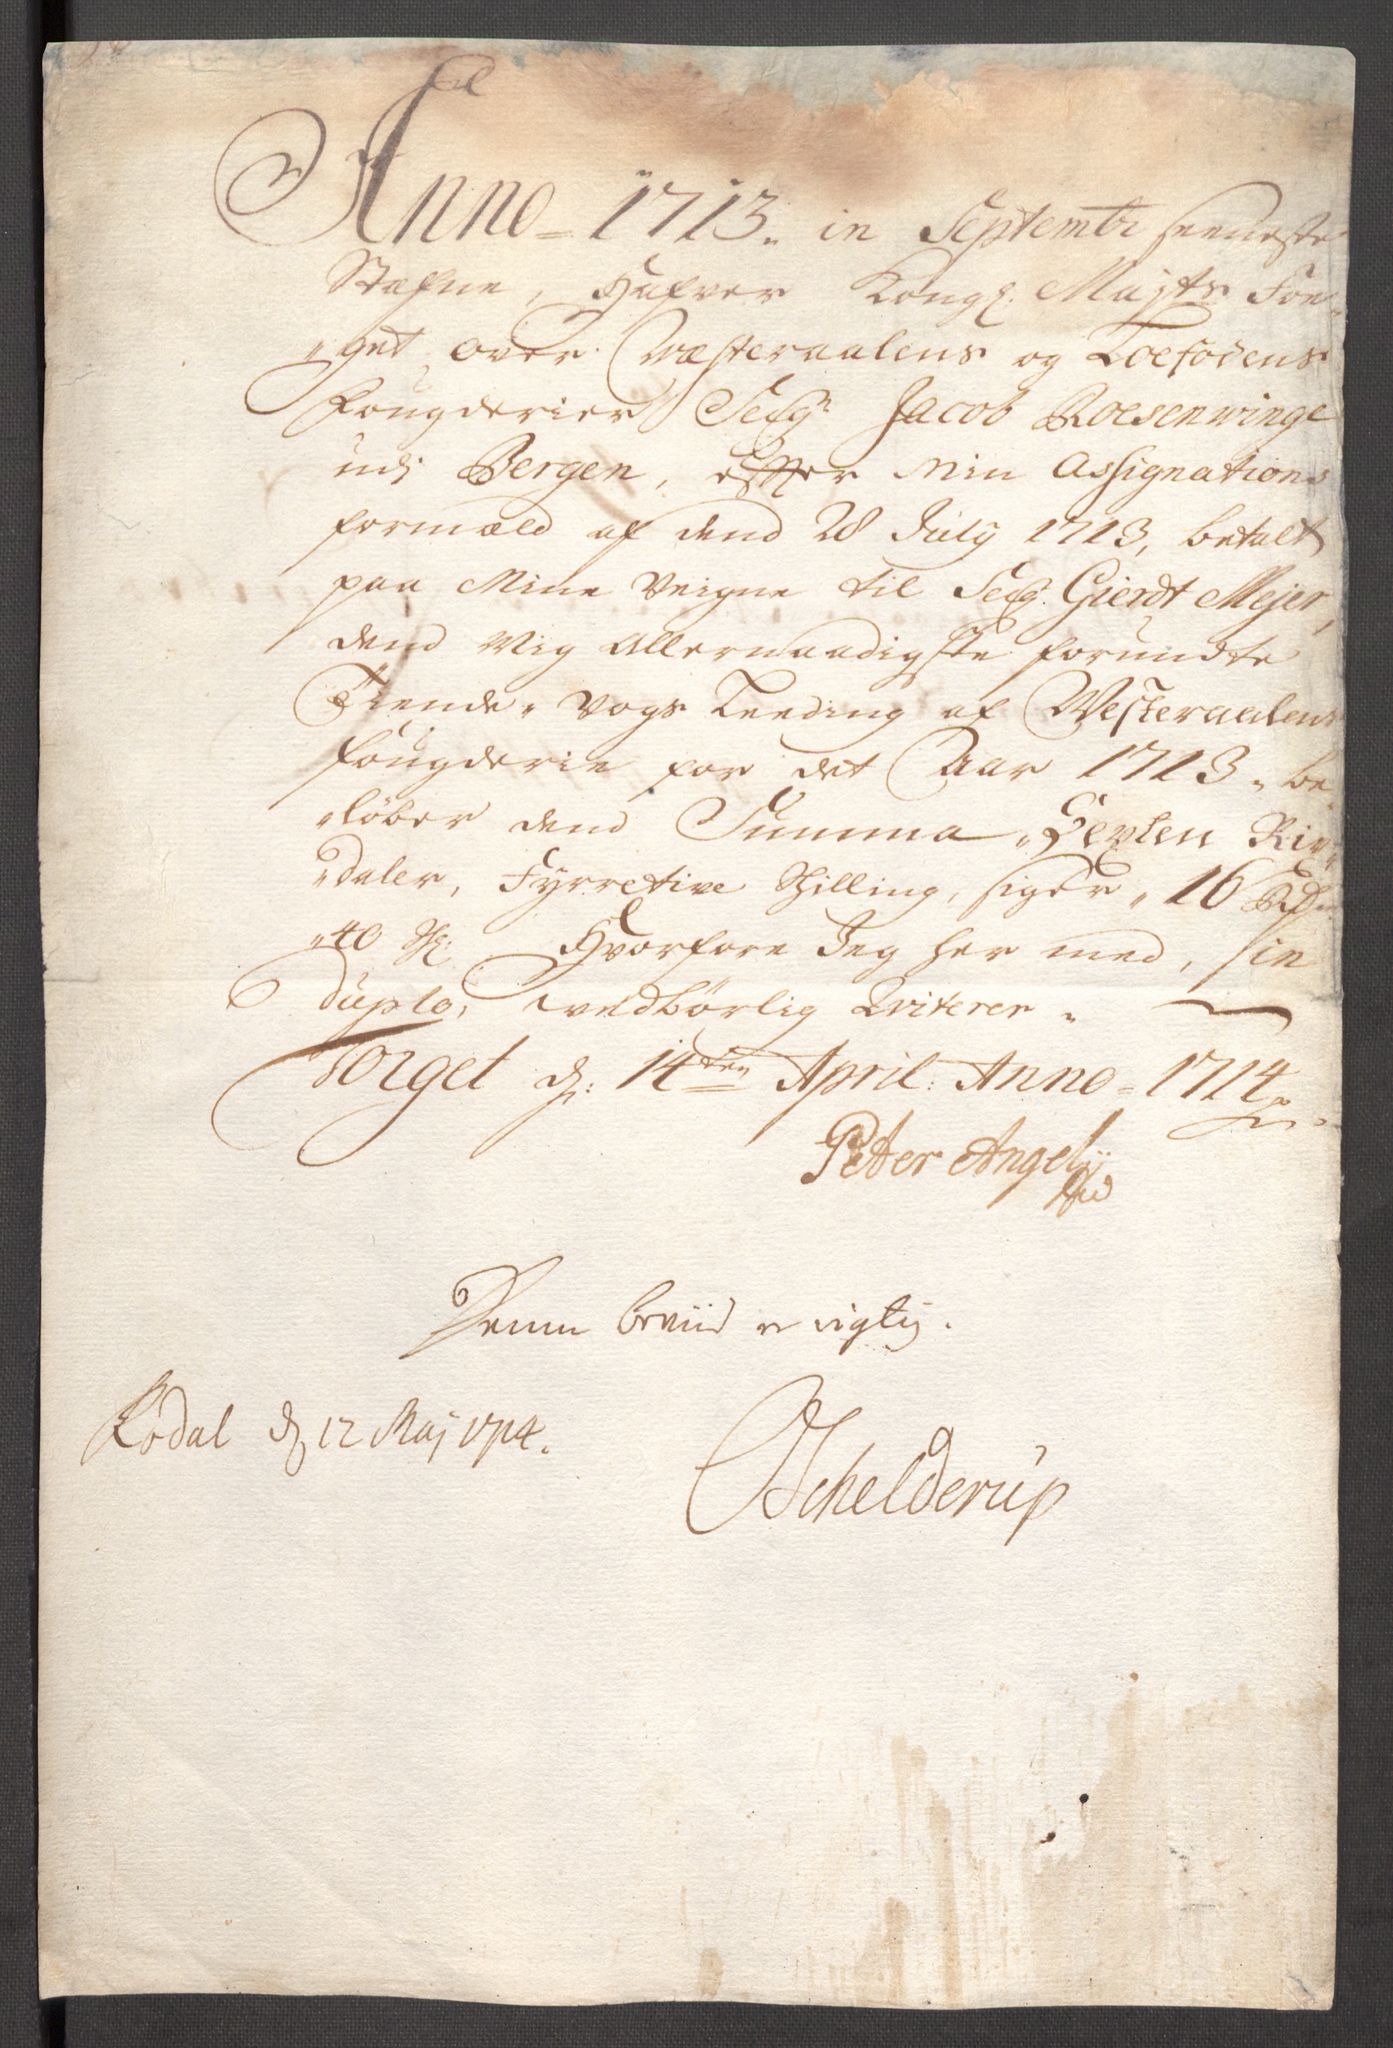 Anno = 1713. in Septembr seeneste
Stæfne, Hafver Kongl. Maÿts Foe„
„get over Væsteraalens og Loefodens
Fougderier Seigr Jacob Roesenwinge
udj Bergen, efter Min Assignations
formæld af dend 28 Julÿ 1713, betalt
paa Mine Veigne til Seig. Gierdt Mejer,
dend Mig Allernaadigste forundte
Tiende„ Vogs Leeding af Westeraalens
fougderie for det Aar 1713„ be„
„løber dend Summa „Sexten Rix„
„daler, Fyrretive Skilling, siger „16 Rdr
„40 sk: Hvorfore Jeg her med, in
duplo, wedbørlig Qviterer„
Torget d: 14ten April: Anno = 1714
Peter Angelÿ
Denne beviis er rigtig.
Rødal d 12 Maj 1714.
Schelderup